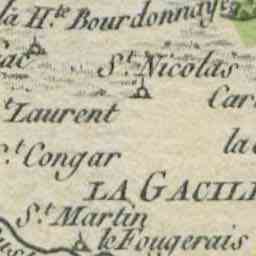 la H.te Bourdonnaye
ac
S.t Nicolas
Car
t Laurent
.t Congar
la
LA GACILI
S.t Martin
le Fougerais